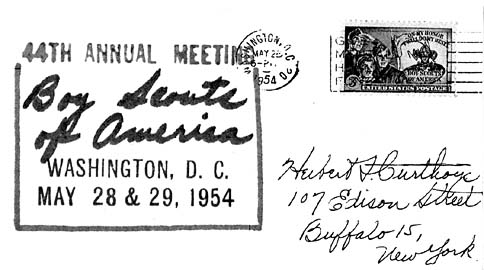 44TH ANNUAL MEETING
Boy Scouts
of America
WASHINGTON, D. C.
MAY 28 & 29, 1954
WASHINGTON, D.C.
MAY 28
1954
ON MY HONOR
I WILL DO MY BEST
BOY SCOUTS
OF AMERICA
UNITED STATES POSTAGE
Hubert F. Curthoys
107 Edison Street
Buffalo 15,
New York